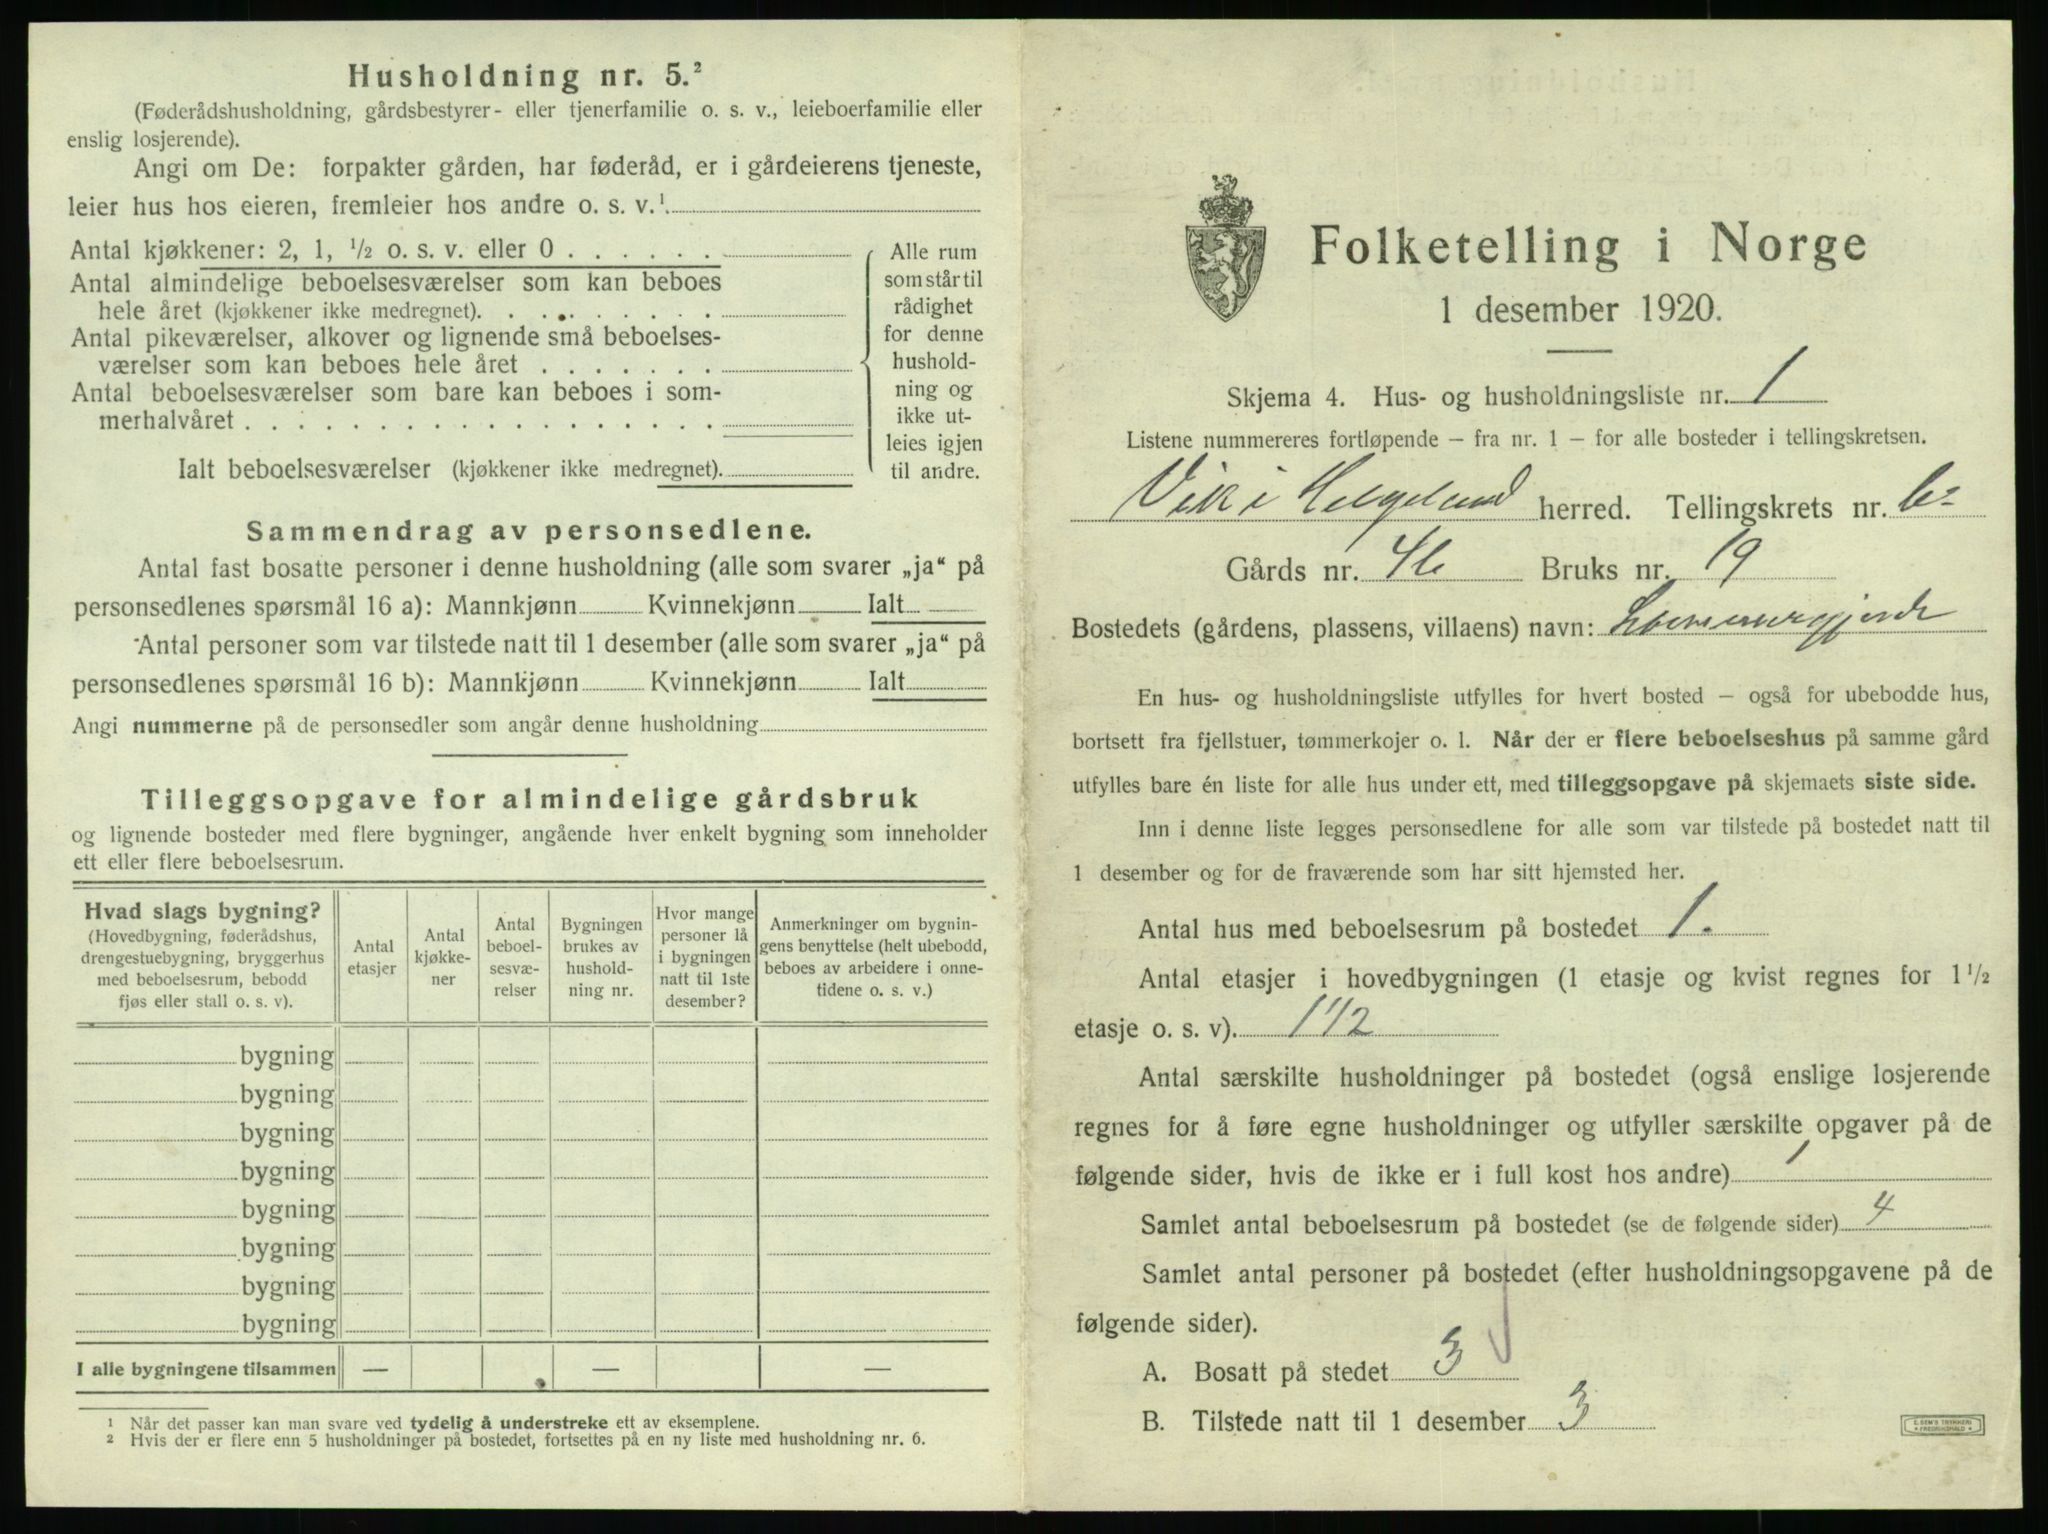 Husholdning nr. 5.²
(Føderådshusholdning, gårdsbestyrer- eller tjenerfamilie o. s. v., leieboerfamilie eller
enslig losjerende).
Angi om De: forpakter gården, har føderåd, er i gårdeierens tjeneste,
leier hus hos eieren, fremleier hos andre o. s. v.¹
Antal kjøkkener: 2, 1, ½ o. s. v. eller 0 . . . . . .
Antal almindelige beboelsesværelser som kan beboes
hele året (kjøkkener ikke medregnet). . . . . . . . .
Antal pikeværelser, alkover og lignende små beboelses-
værelser som kan beboes hele året . . . . . . .
Antal beboelsesværelser som bare kan beboes i som-
merhalvåret . . . . . . . . . . . . . . . . . .
Ialt beboelsesværelser (kjøkkener ikke medregnet).
Alle rum
som står til
rådighet
for denne
hushold-
ning og
ikke ut-
leies igjen
til andre.
Sammendrag av personsedlene.
Antal fast bosatte personer i denne husholdning (alle som svarer „ja“ på
personsedlenes spørsmål 16 a): Mannkjønn Kvinnekjønn Ialt
Antal personer som var tilstede natt til 1 desember (alle som svarer „ja“ på
personsedlenes spørsmål 16 b): Mannkjønn Kvinnekjønn Ialt
Angi nummerne på de personsedler som angår denne husholdning
Tilleggsopgave for almindelige gårdsbruk
og lignende bosteder med flere bygninger, angående hver enkelt bygning som inneholder
ett eller flere beboelsesrum.
Hvad slags bygning?
(Hovedbygning, føderådshus,
drengestuebygning, bryggerhus
med beboelsesrum, bebodd
fjøs eller stall o. s. v).
Antal
etasjer
Antal
kjøkke-
ner
Antal
beboel-
sesvæ-
relser
Bygningen
brukes av
hushold-
ning nr.
Hvor mange
personer lå
i bygningen
natt til 1ste
desember?
Anmerkninger om bygnin-
gens benyttelse (helt ubebodd,
beboes av arbeidere i onne-
tidene o. s. v.)
bygning
bygning
bygning
bygning
bygning
bygning
bygning
bygning
I alle bygningene tilsammen — — —
¹ Når det passer kan man svare ved tydelig å understreke ett av eksemplene.
² Hvis der er flere enn 5 husholdninger på bostedet, fortsettes på en ny liste med husholdning nr. 6.
Folketelling i Norge
1 desember 1920.
Skjema 4. Hus- og husholdningsliste nr. 1
Listene nummereres fortløpende – fra nr. 1 – for alle bosteder i tellingskretsen.
Vik i Helgeland herred. Tellingskrets nr. 6
Gårds nr. 46 Bruks nr. 19
Bostedets (gårdens, plassens, villaens) navn:
En hus- og husholdningsliste utfylles for hvert bosted – også for ubebodde hus,
bortsett fra fjellstuer, tømmerkojer o. l. Når der er flere beboelseshus på samme gård
utfylles bare én liste for alle hus under ett, med tilleggsopgave på skjemaets siste side.
Inn i denne liste legges personsedlene for alle som var tilstede på bostedet natt til
1 desember og for de fraværende som har sitt hjemsted her.
Antal hus med beboelsesrum på bostedet 1.
Antal etasjer i hovedbygningen (1 etasje og kvist regnes for 1 ½
etasje o. s. v). 1 1/2
Antal særskilte husholdninger på bostedet (også enslige losjerende
regnes for å føre egne husholdninger og utfyller særskilte opgaver på de
følgende sider, hvis de ikke er i full kost hos andre) 1
Samlet antal beboelsesrum på bostedet (se de følgende sider) 4
Samlet antal personer på bostedet (efter husholdningsopgavene på de
følgende sider).
A. Bosatt på stedet 3
B. Tilstede natt til 1 desember 3